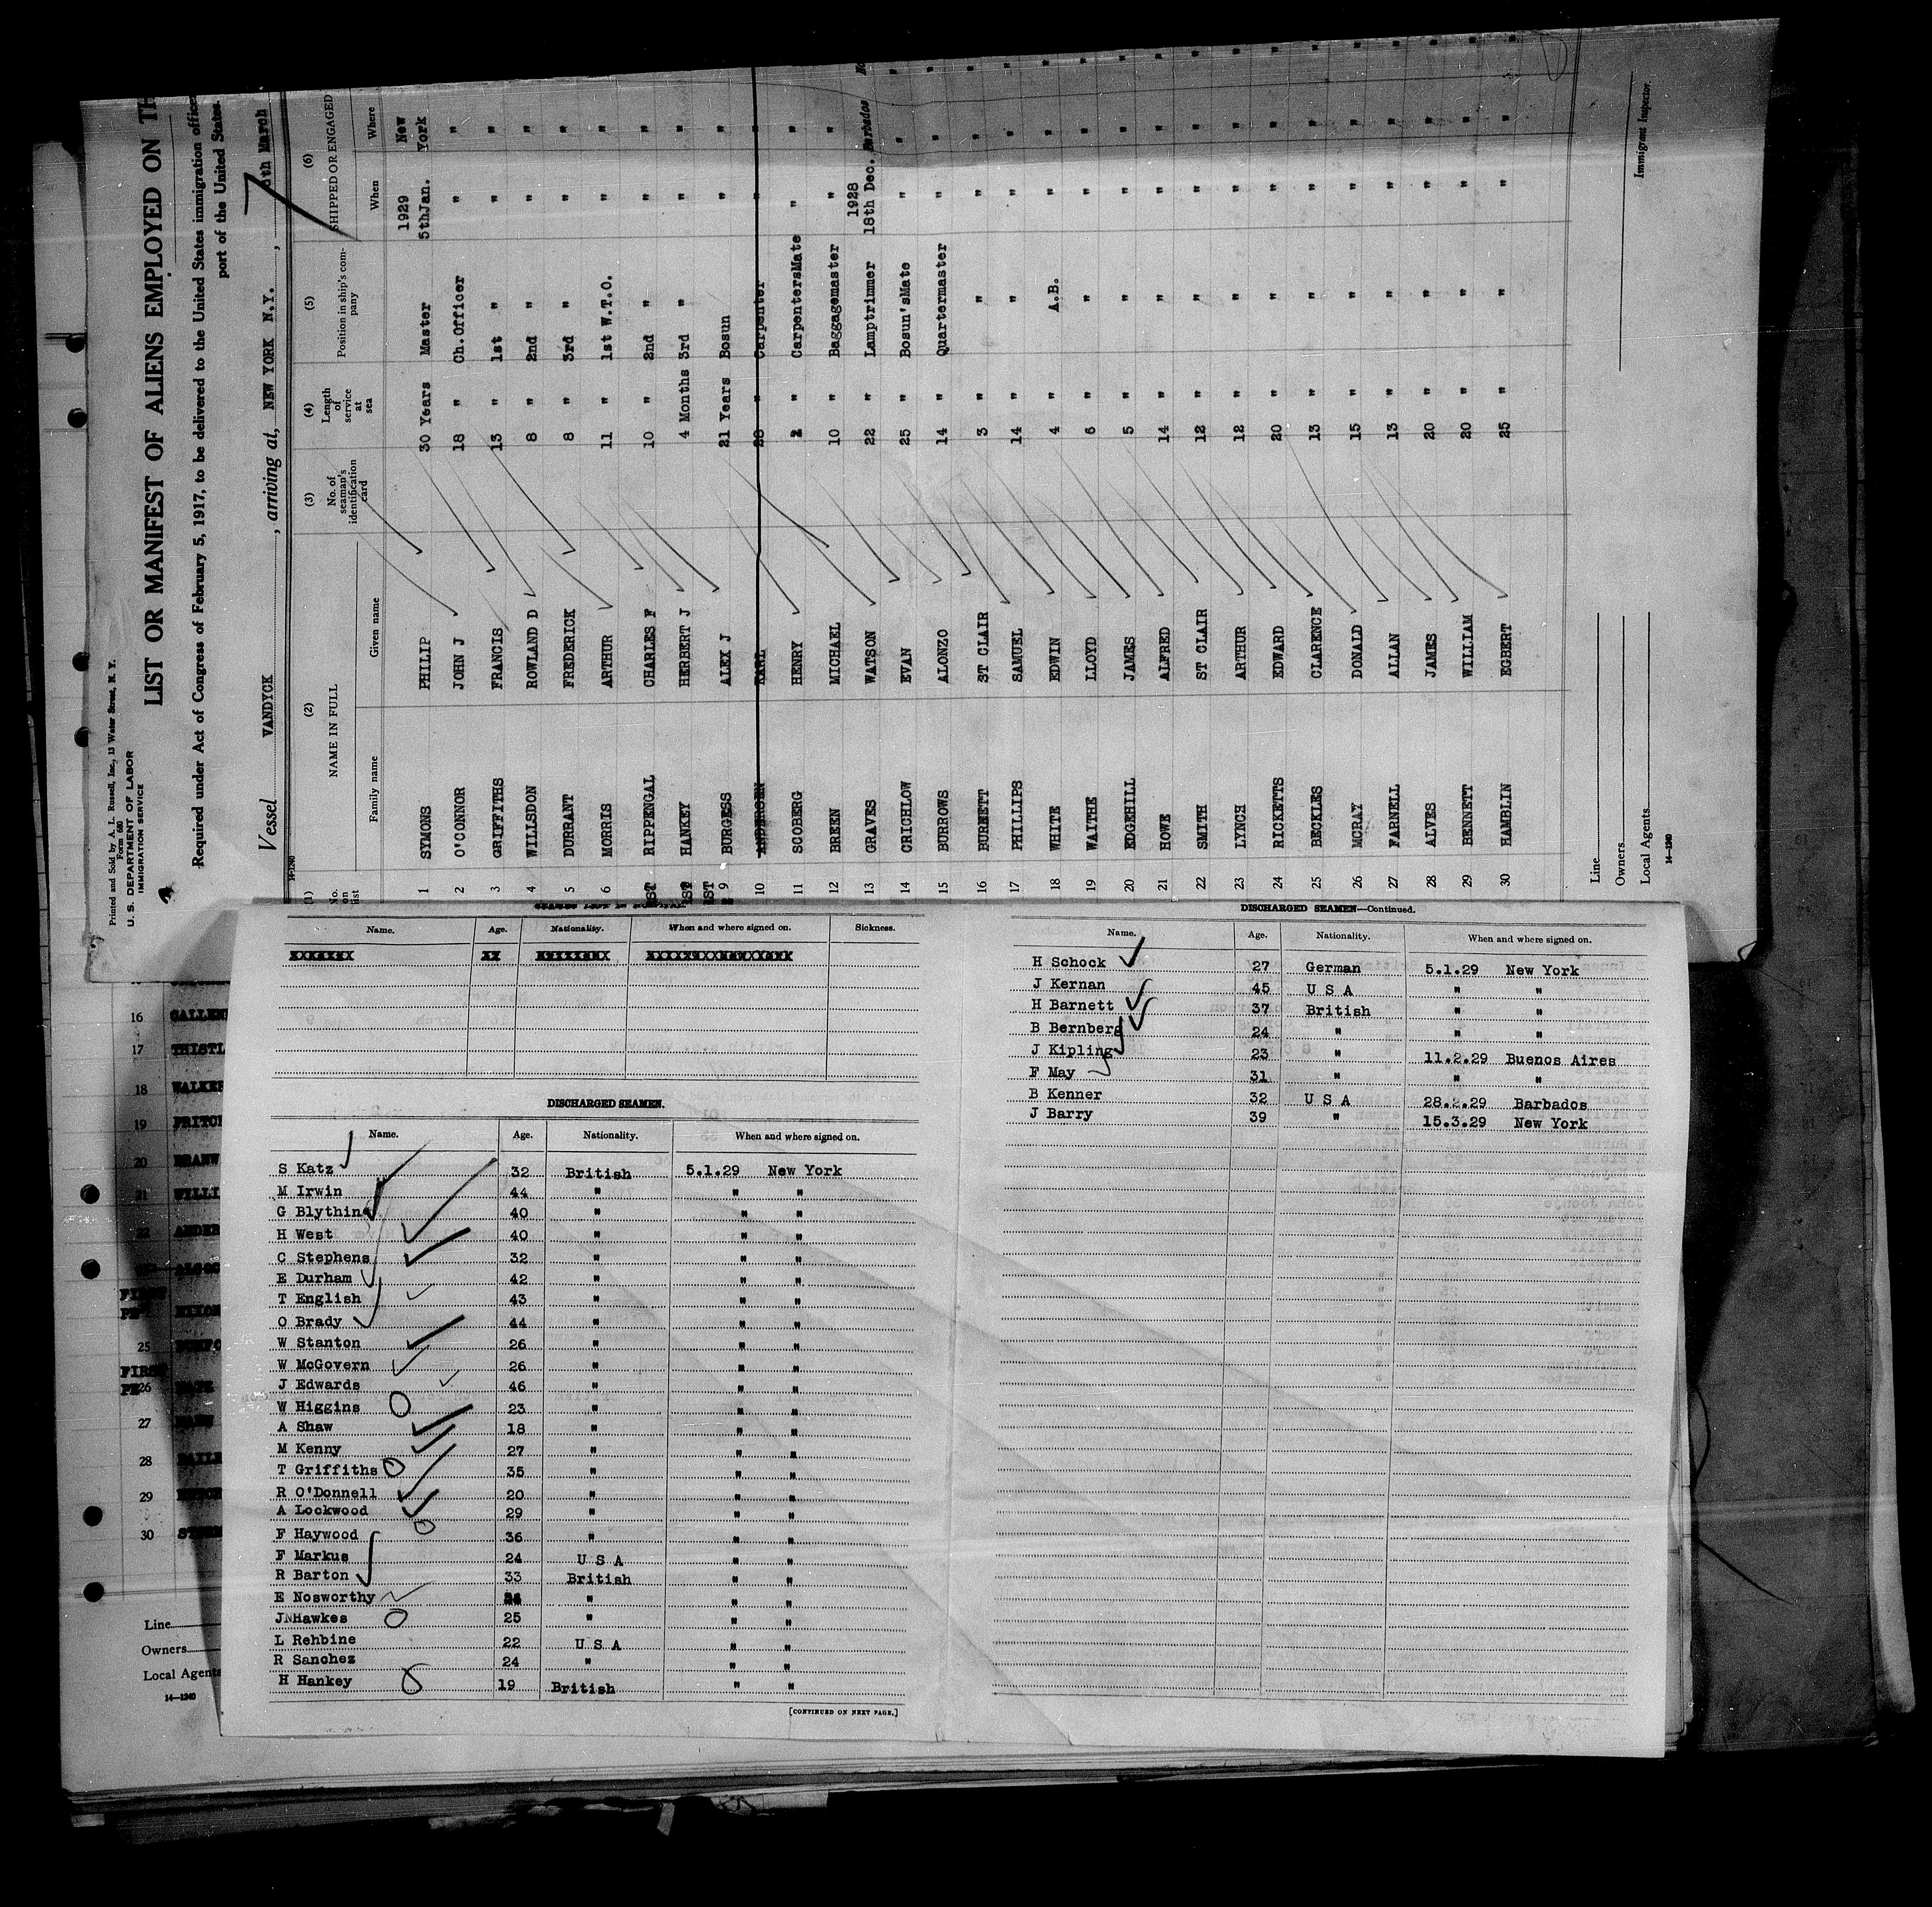 Printed and Sold by A. L. Russell, Inc., 13 Water Street, N. Y.
Form 680
U. S. DEPARTMENT OF LABOR
IMMIGRATION SERVICE
LIST OR MANIFEST OF ALIENS EMPLOYED ON TH
Required under Act of Congress of February 5, 1917, to be delivered to the United States immigration office
port of the United States.
Vessel VANDYCK, arriving at, NEW YORK N.Y., th March
14-1240
(1) (2) (3) (4) (5) (6)
No. on list NAME IN FULL No. of seaman's identification card Length of service at sea Position in ship's company SHIPPED OR ENGAGED
Family name Given name When Where
1 SYMONS PHILIP 30 Years Master 1929 5thJan. New York
2 O'CONNOR JOHN J 18 " Ch.Officer " "
3 GRIFFITHS FRANCIS 13 " 1st " " "
4 WILLSDON ROWLAND D 8 " 2nd " " "
5 DURRANT FREDERICK 8 " 3rd " " "
6 MORRIS ARTHUR 11 " 1st W.T.O. " "
RIPPENGAL CHARLES F 10 " 2nd " " "
HANKEY HERBERT J 4 Months 3rd " " "
9 BURGESS ALEX J 21 Years Bosun " "
10 ANDERSEN KARL 28 " Carpenter " "
11 SCOBERG HENRY 2 " CarpentersMate " "
12 BREEN MICHAEL 10 " Baggagemaster " "
13 GRAVES WATSON 22 " Lamptrimmer 1928 18th Dec. Barbados
14 CRICHLOW EVAN 25 " Bosun'sMate " "
15 BURROWS ALONZO 14 " Quartermaster " "
16 BURNETT ST CLAIR 3 " " " "
17 PHILLIPS SAMUEL 14 " " " "
18 WHITE EDWIN 4 " A.B. " "
19 WAITHE LLOYD 6 " " " "
20 EDGEHILL JAMES 5 " " " "
21 HOWE ALFRED 14 " " " "
22 SMITH ST CLAIR 12 " " " "
23 LYNCH ARTHUR 12 " " " "
24 RICKETTS EDWARD 20 " " " "
25 BECKLES CLARENCE 13 " " " "
26 MCRAY DONALD 15 " " " "
27 FARNELL ALLAN 13 " " " "
28 ALVES JAMES 20 " " " "
29 BENNETT WILLIAM 20 " " " "
30 HAMBLIN EGBERT 25 " " " "
Line
Owners
Local Agents
14-1240
Immigrant Inspector.
16 CALLEN
17 THISTL
18 WALKER
19 PRITCH
20 BRANW
21 WILLI
22 ANDER
FIRST
25
FIRST
26
27
28
29
30
Line
Owners
Local Agents
14-1240
Name. Age. Nationality. When and where signed on. Sickness.
DISCHARGED SEAMEN.
Name. Age. Nationality. When and where signed on.
S Katz 32 British 5.1.29 New York
M Irwin 44 " " "
G Blythin 40 " " "
H West 40 " " "
C Stephens 32 " " "
E Durham 42 " " "
T English 43 " " "
O Brady 44 " " "
W Stanton 26 " " "
W McGovern 26 " " "
J Edwards 46 " " "
W Higgins 23 " " "
A Shaw 18 " " "
M Kenny 27 " " "
T Griffiths 35 " " "
R O'Donnell 20 " " "
A Lockwood 29 " " "
F Haywood 36 " " "
F Markus 24 U S A " "
R Barton 33 British " "
E Nosworthy " " "
JNHawkes 25 " " "
L Rehbine 22 U S A " "
R Sanchez 24 " " "
H Hankey 19 British " "
[CONTINUED ON NEXT PAGE.]
DISCHARGED SEAMEN—Continued.
Name. Age. Nationality. When and where signed on.
H Schock 27 German 5.1.29 New York
J Kernan 45 U S A " "
H Barnett 37 British " "
B Bernberg 24 " " "
J Kipling 23 " 11.2.29 Buenos Aires
F May 31 " " "
B Kenner 32 U S A 28.2.29 Barbados
J Barry 39 " 15.3.29 New York